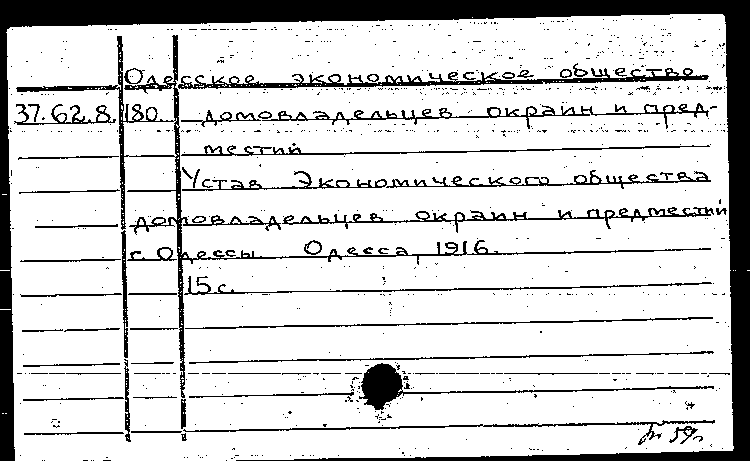 Одесское экономическое общество
37.62.8.180. домовладельцев окраин и пред-
местий
Устав Экономического общества
домовладельцев окраин и предместий
г. Одессы. Одесса, 1916.
15 с.
59г.